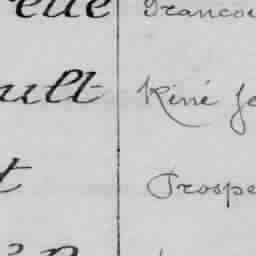 elle Francoi
ult Réné Jo
t Prospe